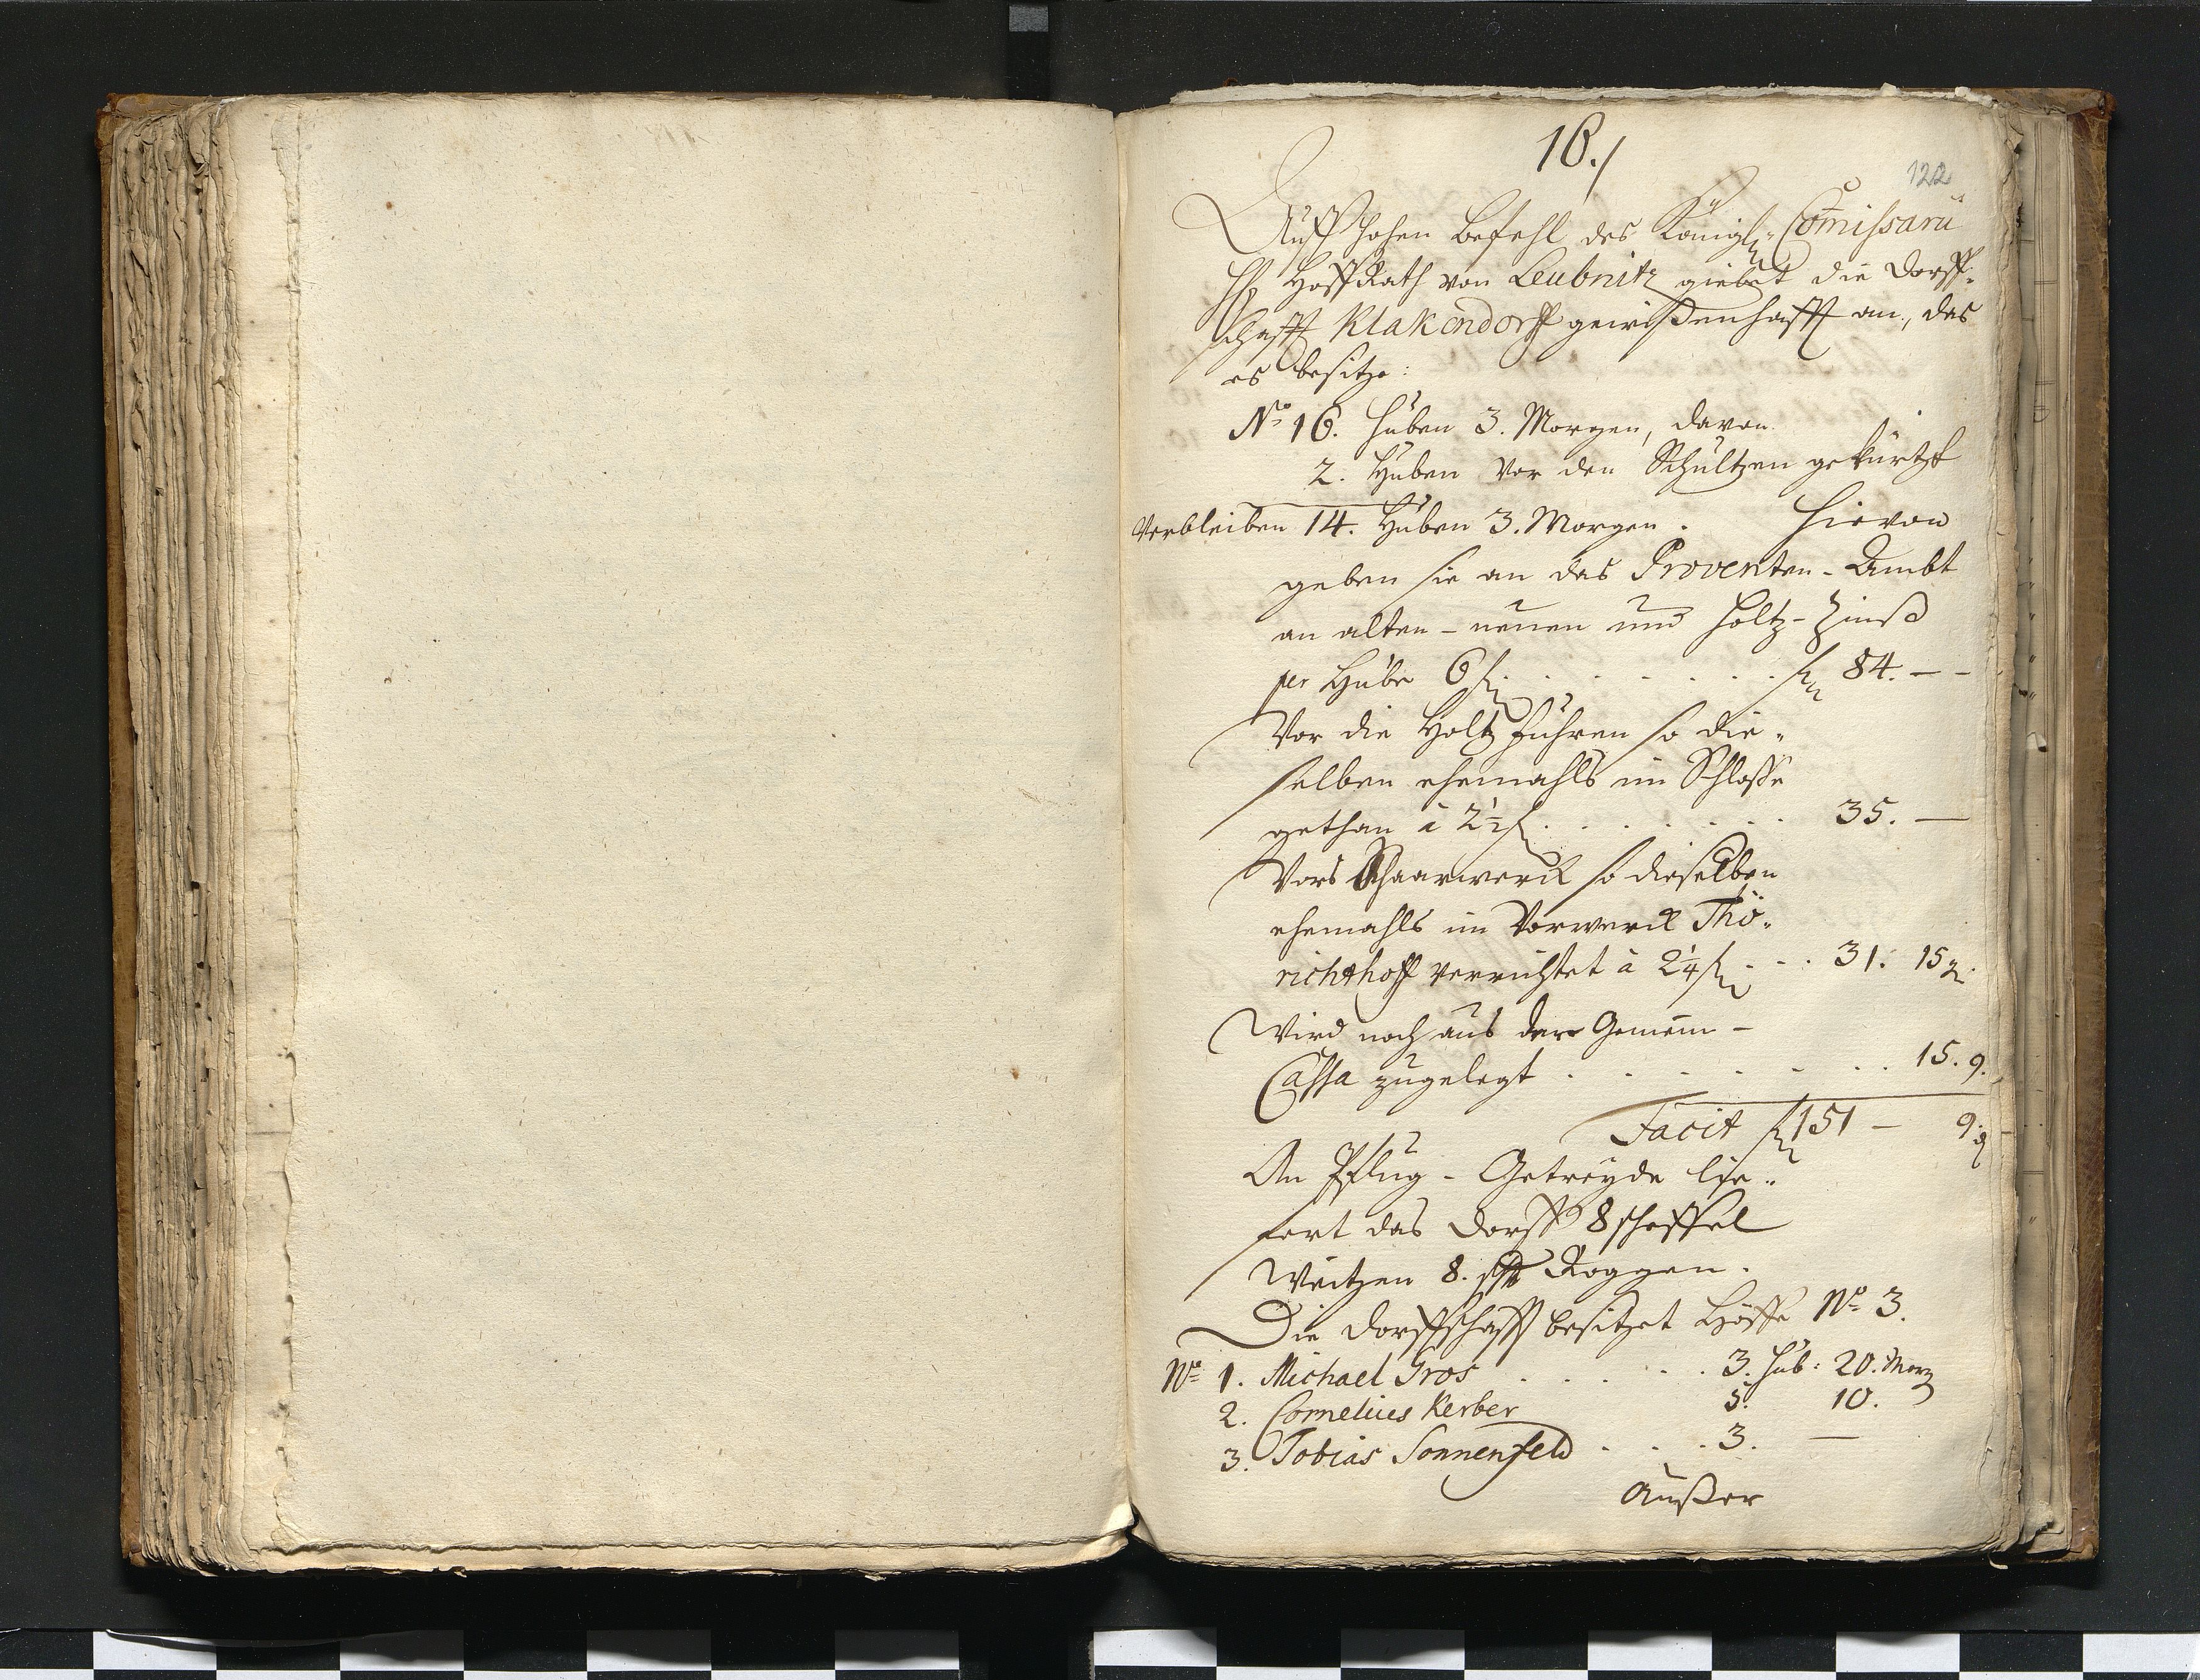 16./
122
Auff hohen Befehl des Königl. Com̄issarii
HoffRath von Leubnitz giebet die Dorff-
schafft Klakendorff gewißenhafft an, das
es besitze:
No 16. Huben 3. Morgen, davon
2. Huben vor den Schultzen gekürtzt
Verbleiben 14. Huben 3. Morgen. Hievon
geben sie an das Proventen-Ambt
an alten- neuen und Holtz-Zinß
per Hube 6 f. . . . . . . . . f 84. — -
Vor die Holtz Fuhren so die-
selben ehemahls im Schloße
gethan à 2½ f . . . . . . . 35. —
Vors Schaarwerck so dieselben
ehemahls im Vorwerck Thö-
richthoff verrichtet à 2¼ f . . . 31. 15 g.
Wird noch aus der Gemein-
Cassa zugelegt . . . . . . . 15. 9.
Facit f 151 — 9 ₰
An Pflug-Getreyde lie-
fert das Dorff 8 scheffel
Weitzen 8. schfl Roggen.
Die Dorffschafft besitzet Höffe No 3.
No 1. Michael Gros . . . . . 3. Hub: 20. Morg
2. Cornelius Kerber 5. 10.
3. Tobias Sonnenfeld . . . 3. —
Außer